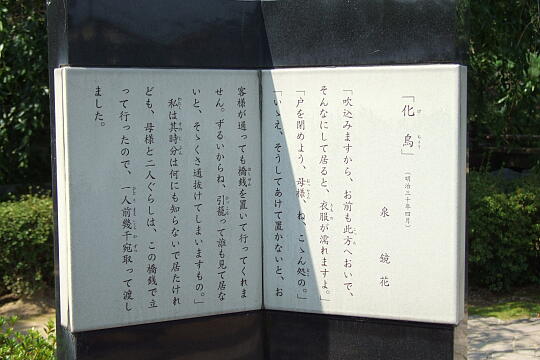 「化鳥」(明治三十年四月)
泉鏡花
「吹込みますから、お前も此方へおいで、
そんなにして居ると、衣服が濡れますよ。」
「戸を閉めよう、母様、ね、こゝん処の。」
「いゝえ、そうしてあけて置かないと、お
客様が通っても橋銭を置いて行ってくれま
せん。ずるいからね、引籠って誰も見て居な
いと、そゝくさ通抜けてしまいますもの。」
私は其時分は何にも知らないで居たけれ
ども、母様と二人ぐらしは、この橋銭で立
って行ったので、一人前幾于宛取って渡し
ました。